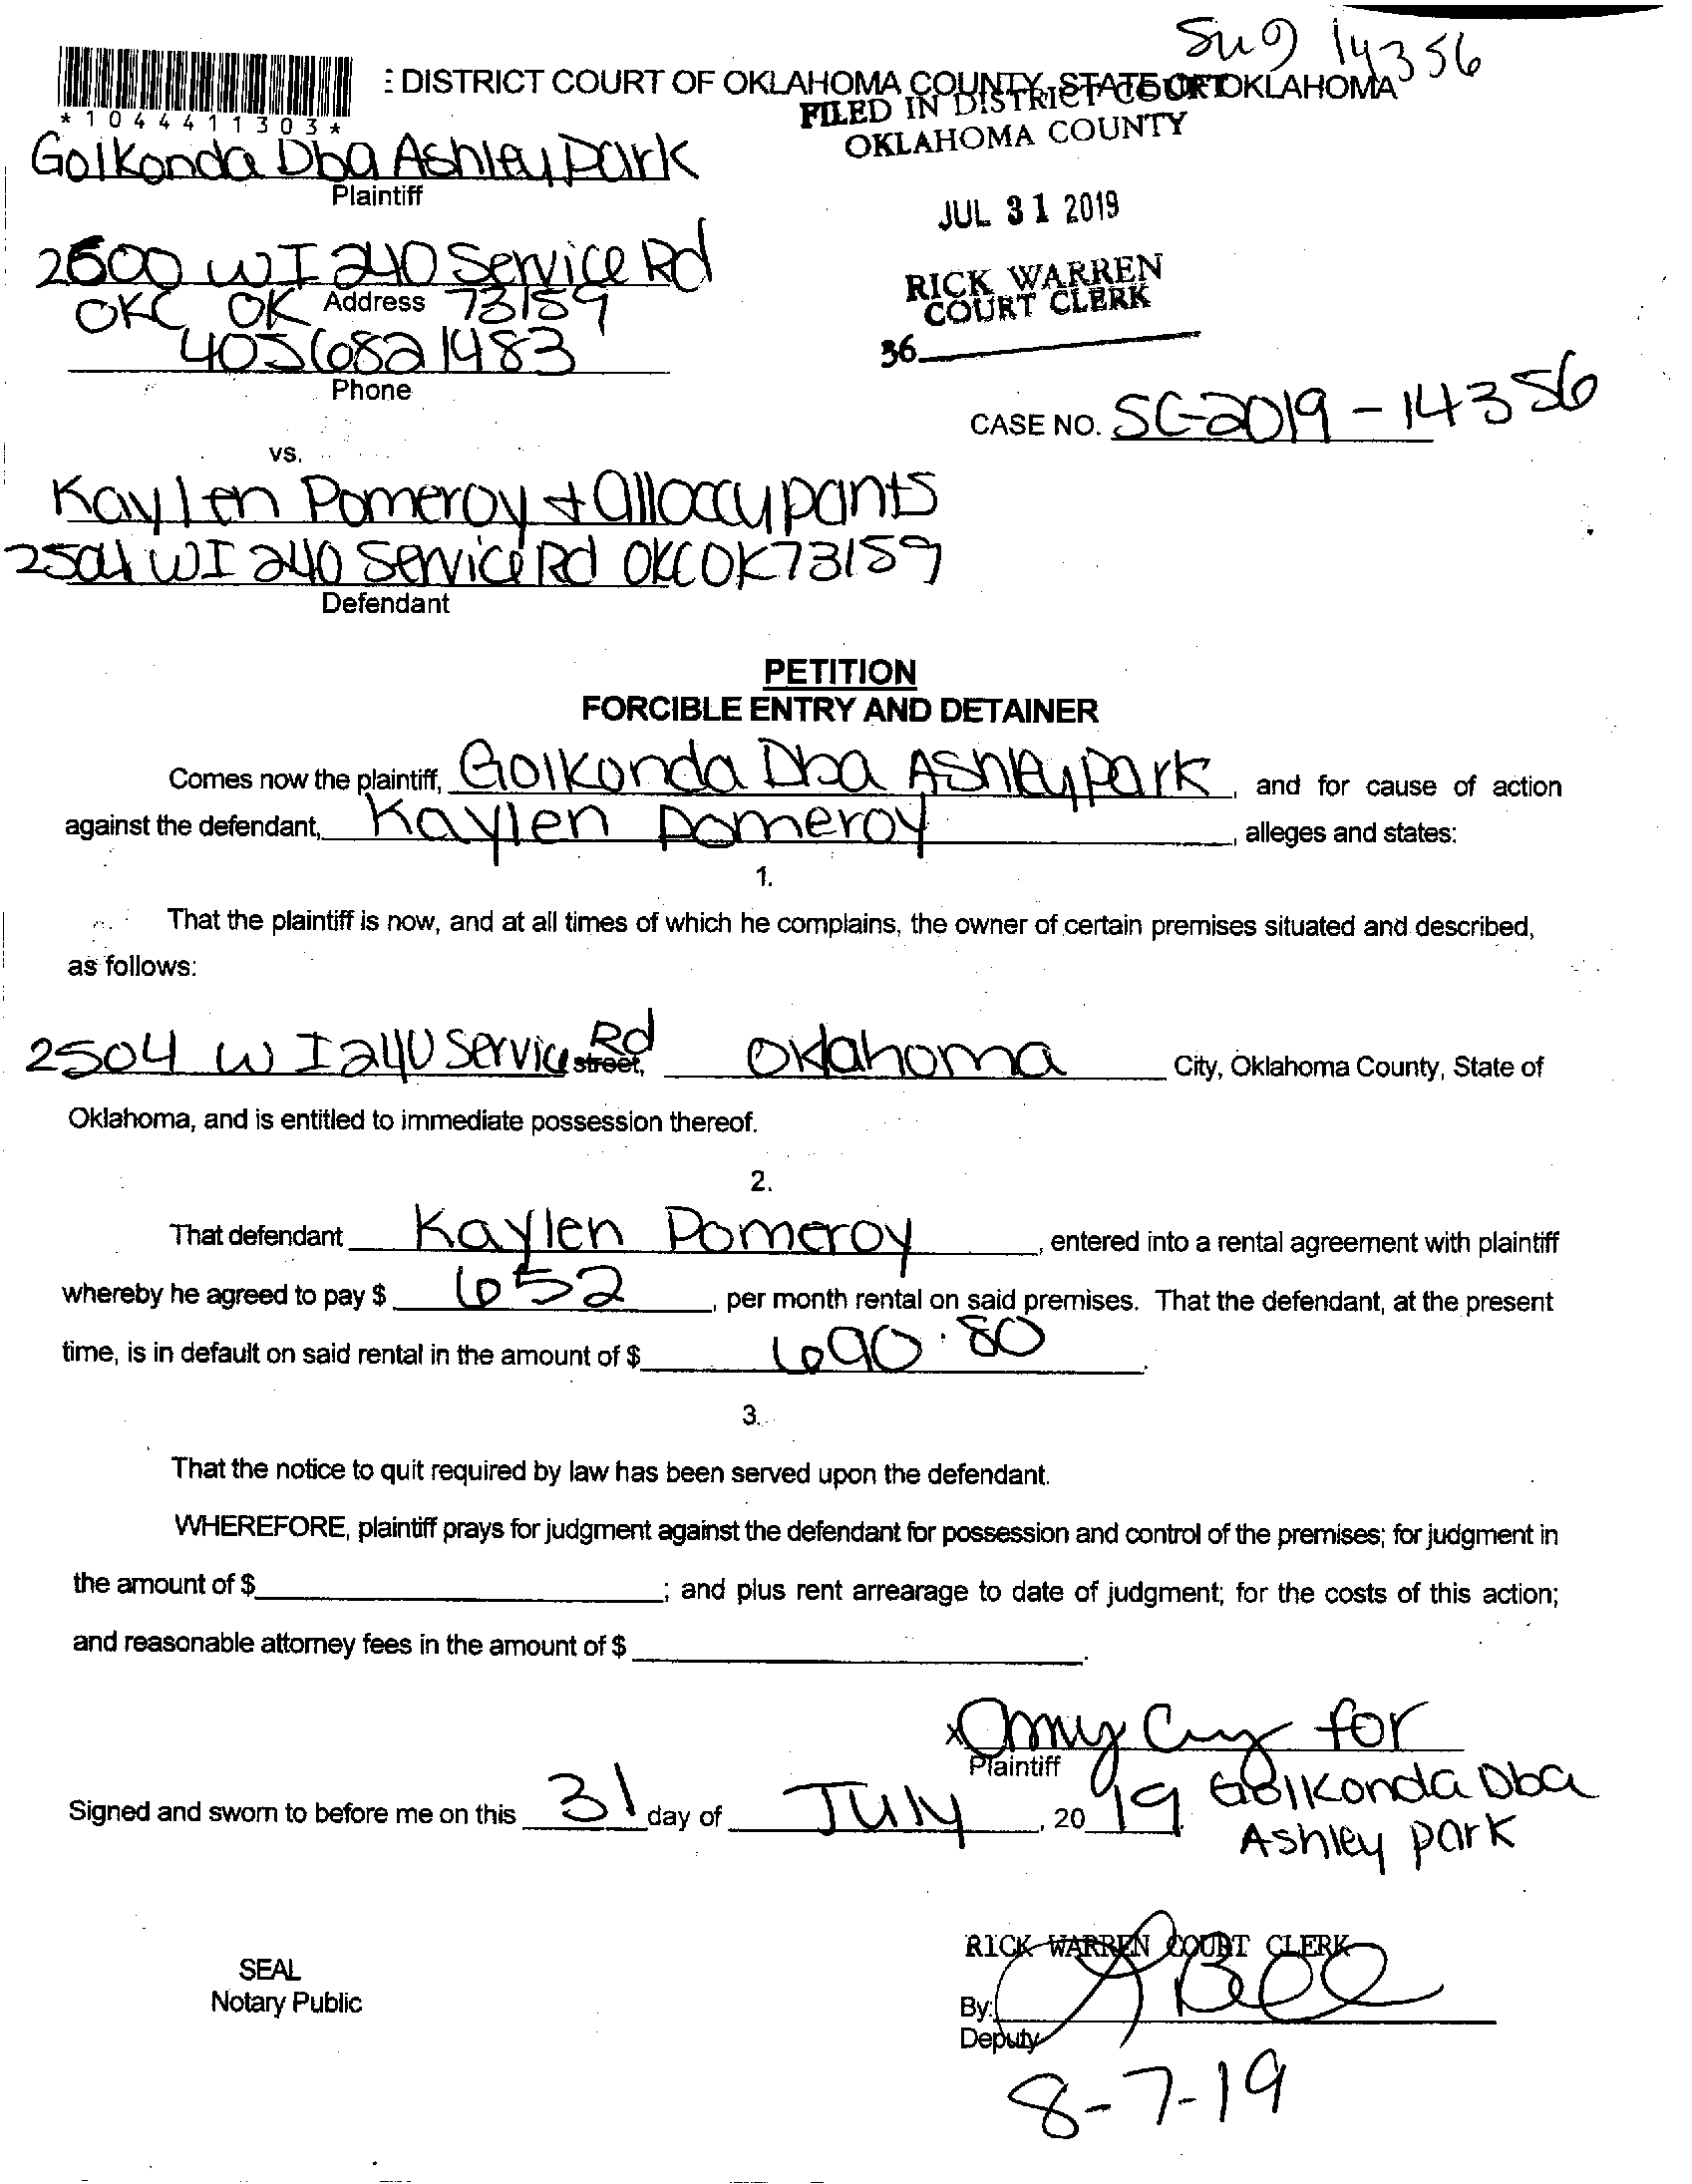 14356
: DISTRICT COURT OF OKLAHOMA COUNTY, STATE OF OKLAHOMA
*1044411303*
FILED IN DISTRICT COURT
OKLAHOMA COUNTY
Golkonda Dba Ashley Park
Plaintiff
JUL 31 2019
2600 W I 240 Service Rd
RICK WARREN
COURT CLERK
OKC OK Address 73159
36
4056821483
Phone
CASE NO. SC-2019-14356
vs.
Kaylen Pomeroy + all occupants
2504 W I 240 Service Rd OKC OK 73159
Defendant
PETITION
FORCIBLE ENTRY AND DETAINER
Comes now the plaintiff, Golkonda Dba Ashley Park, and for cause of action
against the defendant, Kaylen Pomeroy, alleges and states:
1.
That the plaintiff is now, and at all times of which he complains, the owner of certain premises situated and described,
as follows:
2504 W I 240 Service Rd street, Oklahoma City, Oklahoma County, State of
Oklahoma, and is entitled to immediate possession thereof.
2.
That defendant Kaylen Pomeroy, entered into a rental agreement with plaintiff
whereby he agreed to pay $ 652, per month rental on said premises. That the defendant, at the present
time, is in default on said rental in the amount of $ 690.80.
3.
That the notice to quit required by law has been served upon the defendant.
WHEREFORE, plaintiff prays for judgment against the defendant for possession and control of the premises; for judgment in
the amount of $ ; and plus rent arrearage to date of judgment; for the costs of this action;
and reasonable attorney fees in the amount of $ .
x Amy for
Plaintiff
Golkonda Dba
Signed and sworn to before me on this 31 day of July, 2019.
Ashley park
RICK WARREN COURT CLERK
SEAL
Notary Public
By:
Deputy
8-7-19